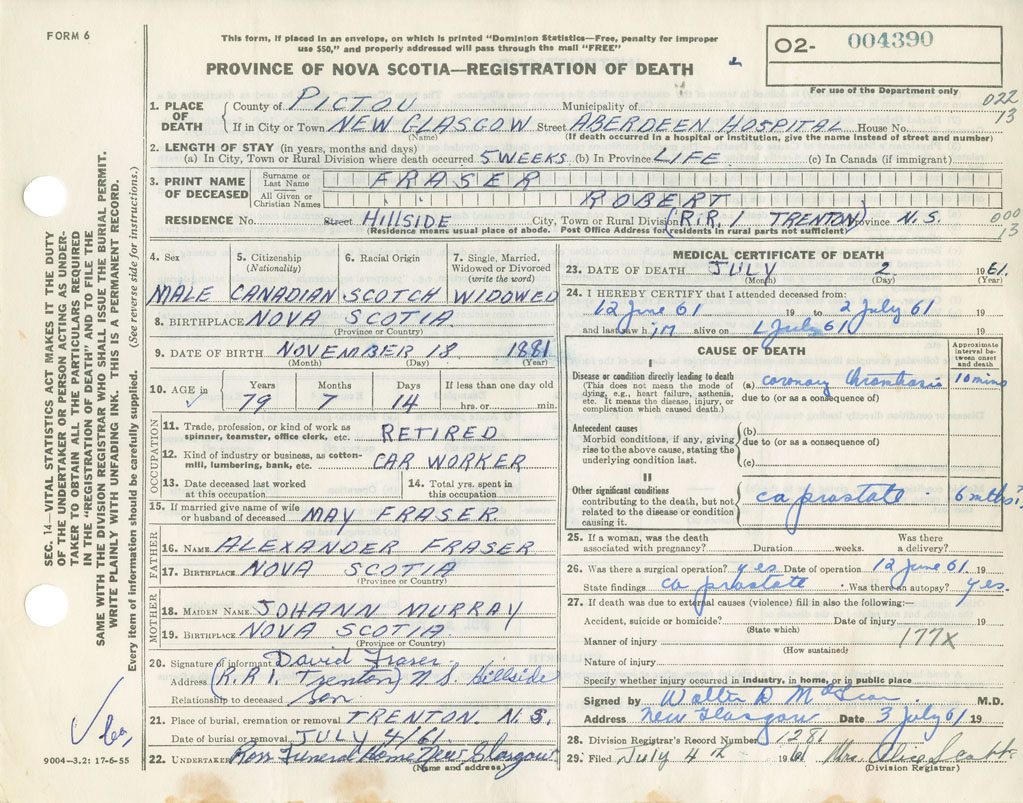 FORM 6
This form, if placed in an envelope, on which is printed "Dominion Statistics—Free, penalty for improper
use $50," and properly addressed will pass through the mail "FREE"
PROVINCE OF NOVA SCOTIA—REGISTRATION OF DEATH
02- 004390
For use of the Department only
022
13
1. PLACE OF DEATH { County of PICTOU Municipality of
If in City or Town NEW GLASGOW Street ABERDEEN HOSPITAL House No.
(Name) (If death occurred in a hospital or institution, give the name instead of street and number)
2. LENGTH OF STAY (in years, months and days)
(a) In City, Town or Rural Division where death occurred 5 WEEKS (b) In Province LIFE (c) In Canada (if immigrant)
3. PRINT NAME OF DECEASED Surname or Last Name FRASER
All Given or Christian Names ROBERT
RESIDENCE No. Street HILLSIDE City, Town or Rural Division (R.R. 1 TRENTON) Province N.S.
(Residence means usual place of abode. Post Office Address for residents in rural parts not sufficient)
000
13
4. Sex 5. Citizenship (Nationality) 6. Racial Origin 7. Single, Married, Widowed or Divorced (write the word)
MALE CANADIAN SCOTCH WIDOWED
8. BIRTHPLACE NOVA SCOTIA
(Province or Country)
9. DATE OF BIRTH NOVEMBER 18 1881
(Month) (Day) (Year)
10. AGE in Years Months Days If less than one day old
79 7 14 hrs. or min.
OCCUPATION
11. Trade, profession, or kind of work as
spinner, teamster, office clerk, etc. RETIRED
12. Kind of industry or business, as cotton-
mill, lumbering, bank, etc. CAR WORKER
13. Date deceased last worked at this occupation 14. Total yrs. spent in this occupation
15. If married give name of wife
or husband of deceased MAY FRASER.
FATHER
16. NAME ALEXANDER FRASER
17. BIRTHPLACE NOVA SCOTIA
(Province or Country)
MOTHER
18. MAIDEN NAME JOHANN MURRAY
19. BIRTHPLACE NOVA SCOTIA
(Province or Country)
20. Signature of informant David Fraser
Address (R.R 1. Trenton) N.S. Hillside
Relationship to deceased Son
21. Place of burial, cremation or removal TRENTON. N.S.
Date of burial or removal JULY 4/61
22. UNDERTAKER Ross Funeral Home New Glasgow
(Name and address)
MEDICAL CERTIFICATE OF DEATH
23. DATE OF DEATH JULY 2 1961
(Month) (Day) (Year)
24. I HEREBY CERTIFY that I attended deceased from:
12 June 61 19 to 2 July 61 19
and last saw h im alive on 1 July 61 19
CAUSE OF DEATH
Approximate interval between onset and death
I
Disease or condition directly leading to death
(This does not mean the mode of
dying, e.g., heart failure, asthenia,
etc. It means the disease, injury, or
complication which caused death.)
(a) coronary thrombosis 10 mins
due to (or as a consequence of)
Antecedent causes
Morbid conditions, if any, giving
rise to the above cause, stating the
underlying condition last.
(b)
due to (or as a consequence of)
(c)
II
Other significant conditions
contributing to the death, but not
related to the disease or condition
causing it.
ca prostate 6 mths?
25. If a woman, was the death Was there
associated with pregnancy? Duration weeks. a delivery?
26. Was there a surgical operation? yes Date of operation 12 June 61 19
State findings ca prostate Was there an autopsy? yes.
27. If death was due to external causes (violence) fill in also the following:—
Accident, suicide or homicide? Date of injury 19
(State which)
Manner of injury 177X
(How sustained)
Nature of injury
Specify whether injury occurred in industry, in home, or in public place
Signed by Walter D. McLean M.D.
Address New Glasgow Date 3 July 61 19
28. Division Registrar's Record Number 1281
29. Filed July 4th 1961 Mrs. Alice Scott
(Division Registrar)
SEC. 14—VITAL STATISTICS ACT MAKES IT THE DUTY
OF THE UNDERTAKER OR PERSON ACTING AS UNDER-
TAKER TO OBTAIN ALL THE PARTICULARS REQUIRED
IN THE "REGISTRATION OF DEATH" AND TO FILE THE
SAME WITH THE DIVISION REGISTRAR WHO SHALL ISSUE THE BURIAL PERMIT.
WRITE PLAINLY WITH UNFADING INK. THIS IS A PERMANENT RECORD.
Every item of information should be carefully supplied. (See reverse side for instructions.)
9004—3.2: 17-6-55